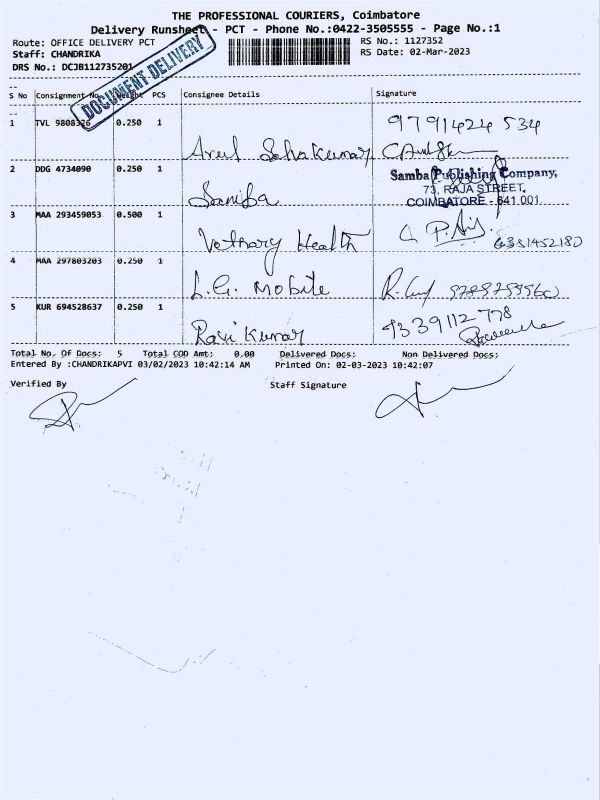 THE PROFESSIONAL COURIERS, Coimbatore
Delivery Runsheet - PCT - Phone No.:0422-3505555 - Page No.:1
Route: OFFICE DELIVERY PCT
RS No.: 1127352
Staff: CHANDRIKA
RS Date: 02-Mar-2023
DRS No.: DCJB112735201
DOCUMENT DELIVERY
S No Consignment No. Weight PCS Consignee Details Signature
1 TVL 9808326 0.250 1
9791424 534
Arul Saha Kumar
2 DDG 4734090 0.250 1
Samba Publishing Company,
73, RAJA STREET,
COIMBATORE - 641 001.
Samba
3 MAA 293459053 0.500 1
Vethary Health
4 MAA 297803203 0.250 1
L.G. Mobile
5 KUR 694528637 0.250 1
9339112 778
Ravi Kumar
Total No. Of Docs: 5 Total COD Amt: 0.00 Delivered Docs: Non Delivered Docs:
Entered By :CHANDRIKAPVI 03/02/2023 10:42:14 AM Printed On: 02-03-2023 10:42:07
Verified By Staff Signature